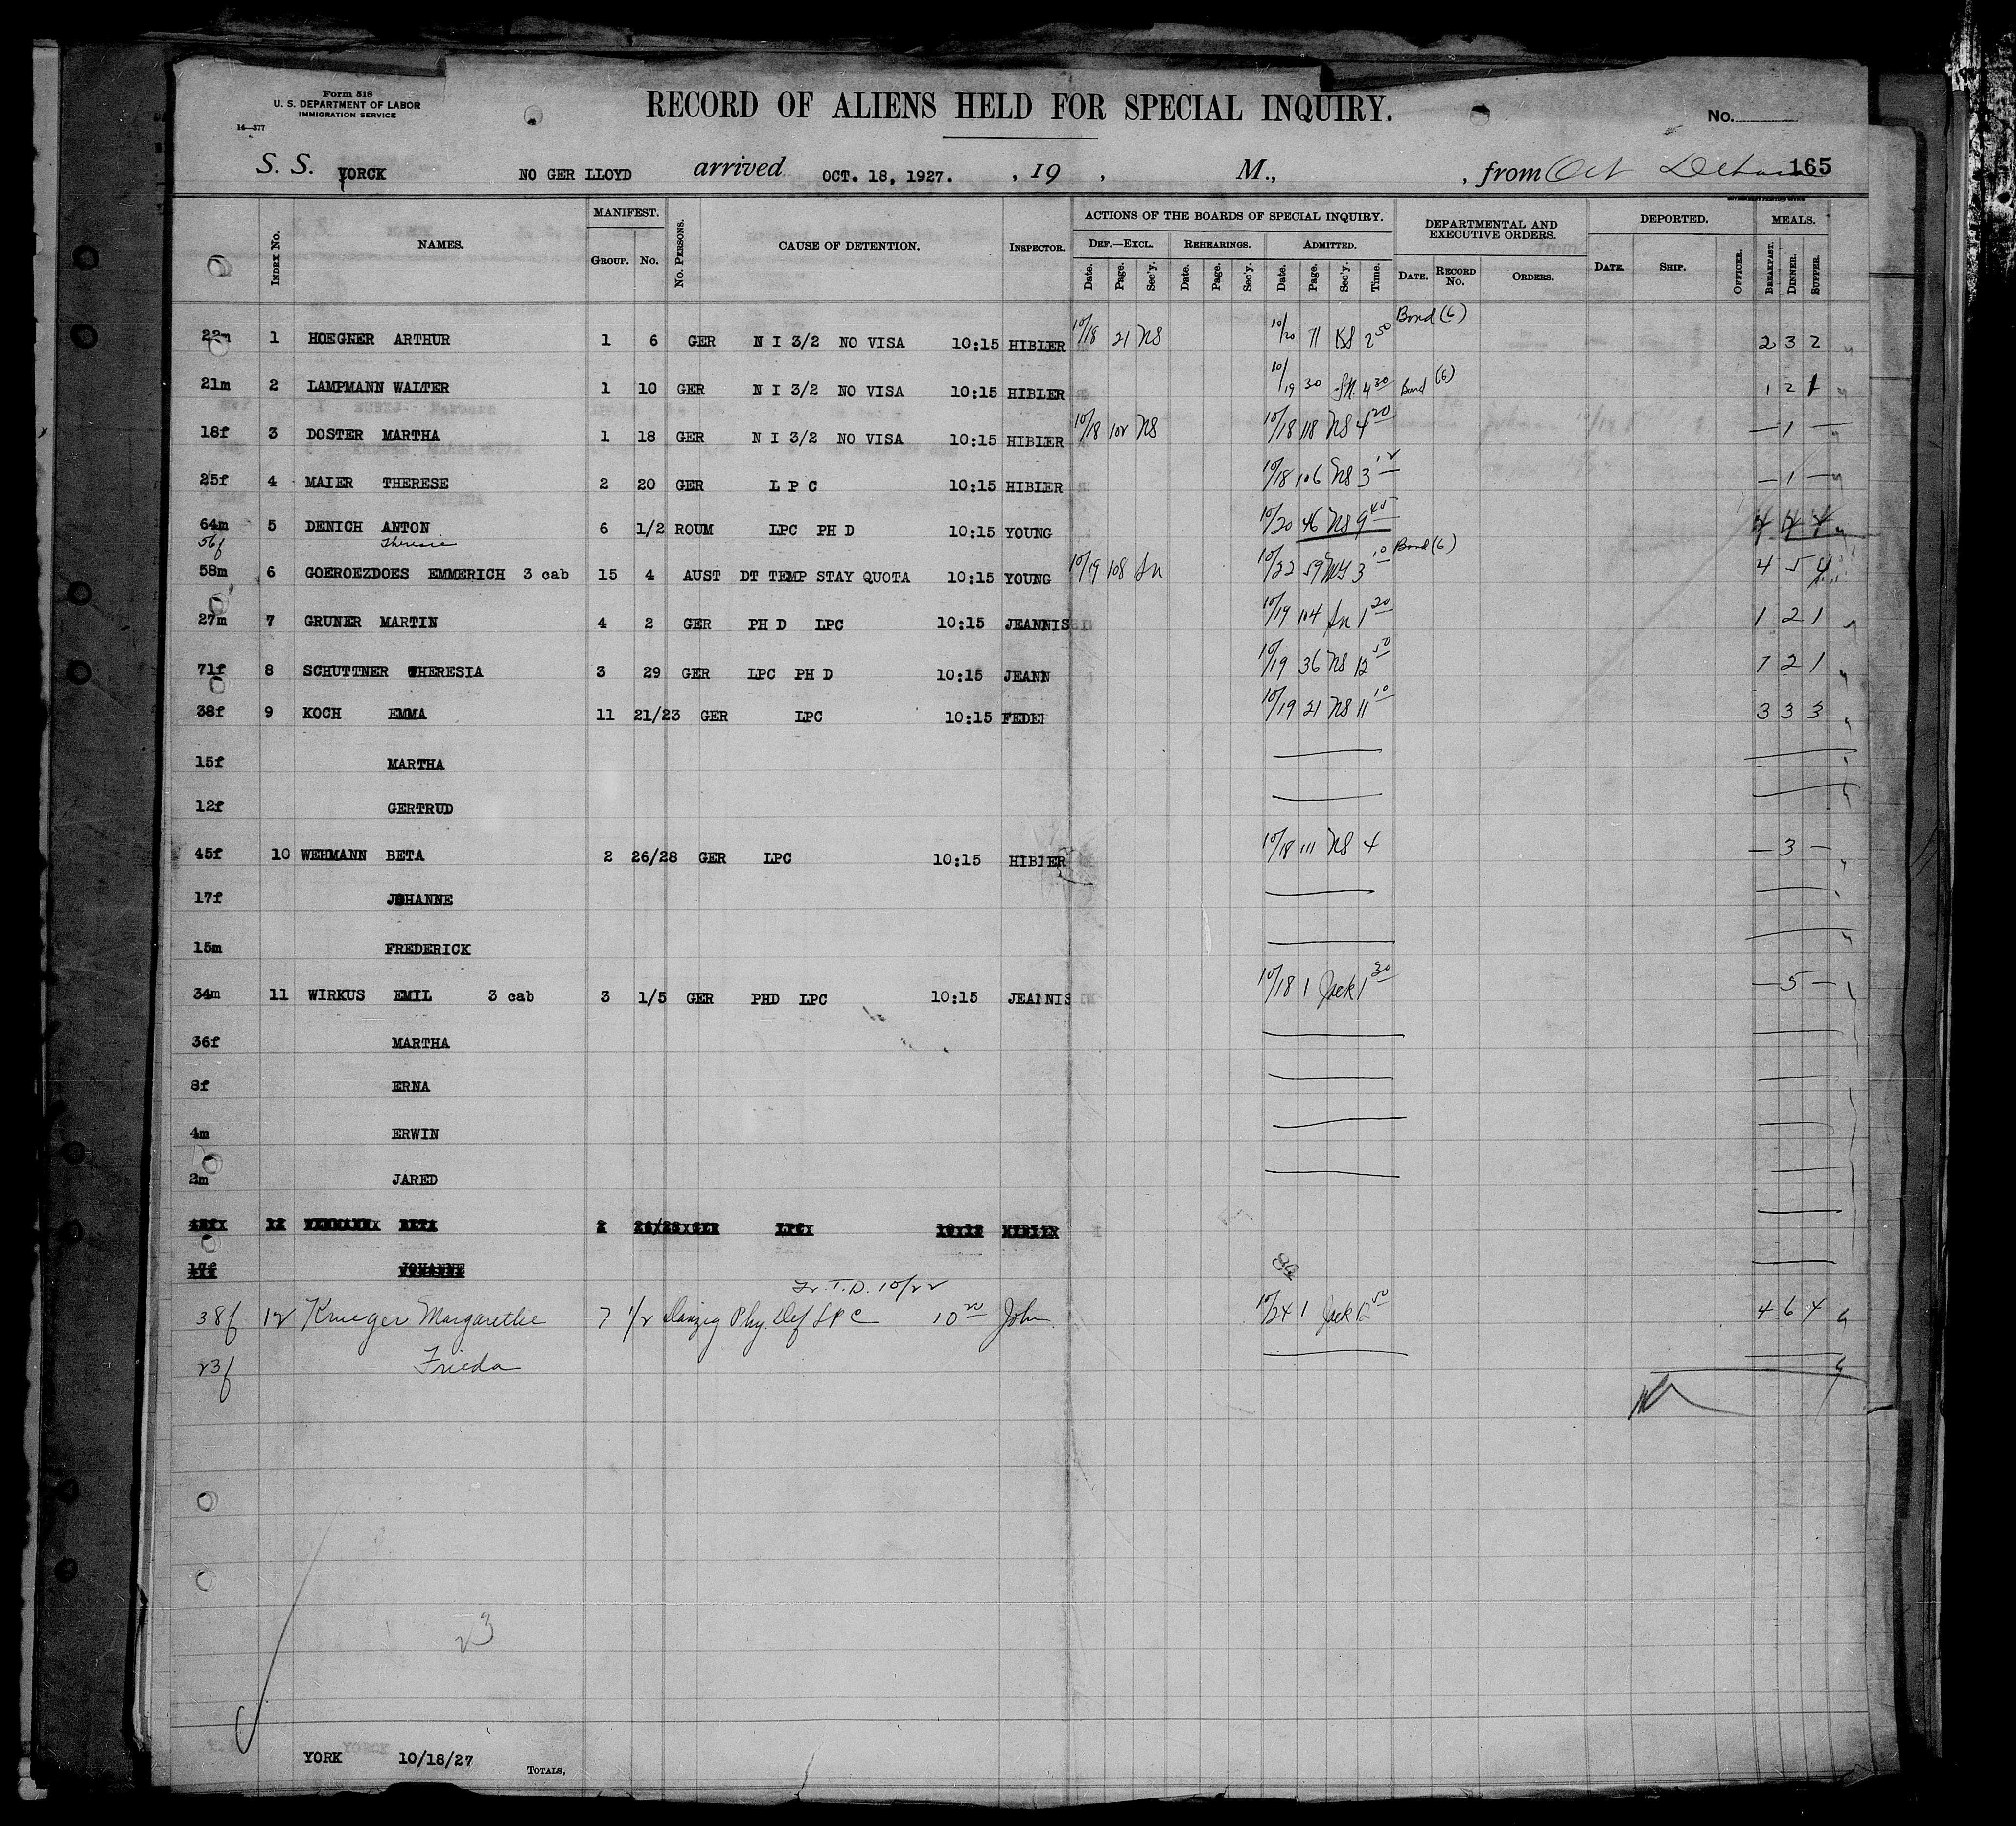 Form 518
U. S. DEPARTMENT OF LABOR
IMMIGRATION SERVICE
14—377
RECORD OF ALIENS HELD FOR SPECIAL INQUIRY.
No.
S. S. YORCK NO GER LLOYD arrived OCT. 18, 1927. , 19 , M., , from Oct 165
INDEX No. NAMES. MANIFEST. GROUP. No. No. PERSONS. CAUSE OF DETENTION. INSPECTOR. ACTIONS OF THE BOARDS OF SPECIAL INQUIRY. DEF.—EXCL. REHEARINGS. ADMITTED. DEPARTMENTAL AND EXECUTIVE ORDERS. DEPORTED. MEALS.
Date. Page. Sec'y. Date. Page. Sec'y. Date. Page. Sec'y. Time. DATE. RECORD No. ORDERS. DATE. SHIP. OFFICER. BREAKFAST. DINNER. SUPPER.
Bond (6)
22m 1 HOEGNER ARTHUR 1 6 GER N I 3/2 NO VISA 10:15 HIBLER 10/18 21 NS 10/20 71 2 50 2 3 2
21m 2 LAMPMANN WALTER 1 10 GER N I 3/2 NO VISA 10:15 HIBLER 10/19 30 4 30 Bond (6) 1 2 1
18f 3 DOSTER MARTHA 1 18 GER N I 3/2 NO VISA 10:15 HIBLER 10/18 102 NS 10/18 118 NS 4 20 — 1 —
25f 4 MAIER THERESE 2 20 GER L P C 10:15 HIBLER 10/18 106 NS 3 12 — 1 —
64m 5 DENICH ANTON 6 1/2 ROUM LPC PH D 10:15 YOUNG 10/20 46 NS 9 45
56f Theresie
Bond (6)
58m 6 GOEROEZDOES EMMERICH 3 cab 15 4 AUST DT TEMP STAY QUOTA 10:15 YOUNG 10/19 108 10/22 59 3 10 4 5 4
27m 7 GRUNER MARTIN 4 2 GER PH D LPC 10:15 JEANNIS 10/19 104 1 20 1 2 1
71f 8 SCHUTTNER THERESIA 3 29 GER LPC PH D 10:15 JEANN 10/19 36 NS 12 50 1 2 1
38f 9 KOCH EMMA 11 21/23 GER LPC 10:15 FEDE 10/19 21 NS 11 10 3 3 3
15f MARTHA
12f GERTRUD
45f 10 WEHMANN BETA 2 26/28 GER LPC 10:15 HIBIER 10/18 111 NS 4 — 3 —
17f JOHANNE
15m FREDERICK
34m 11 WIRKUS EMIL 3 cab 3 1/5 GER PHD LPC 10:15 JEANNIS 10/18 1 Jack 1 30 — 5 —
36f MARTHA
8f ERNA
4m ERWIN
2m JARED
12 WEHMANN BETA 2 26/28 GER LPC 10:15 HIBIER
17f JOHANNE
Tr. T. D. 10/22
38f 12 Krueger Margarethe 7 1/2 Danzig Phy. Def LPC 10 20 John 10/24 1 Jack 12 50 4 6 4
23f Frieda
23
YORK 10/18/27 TOTALS,